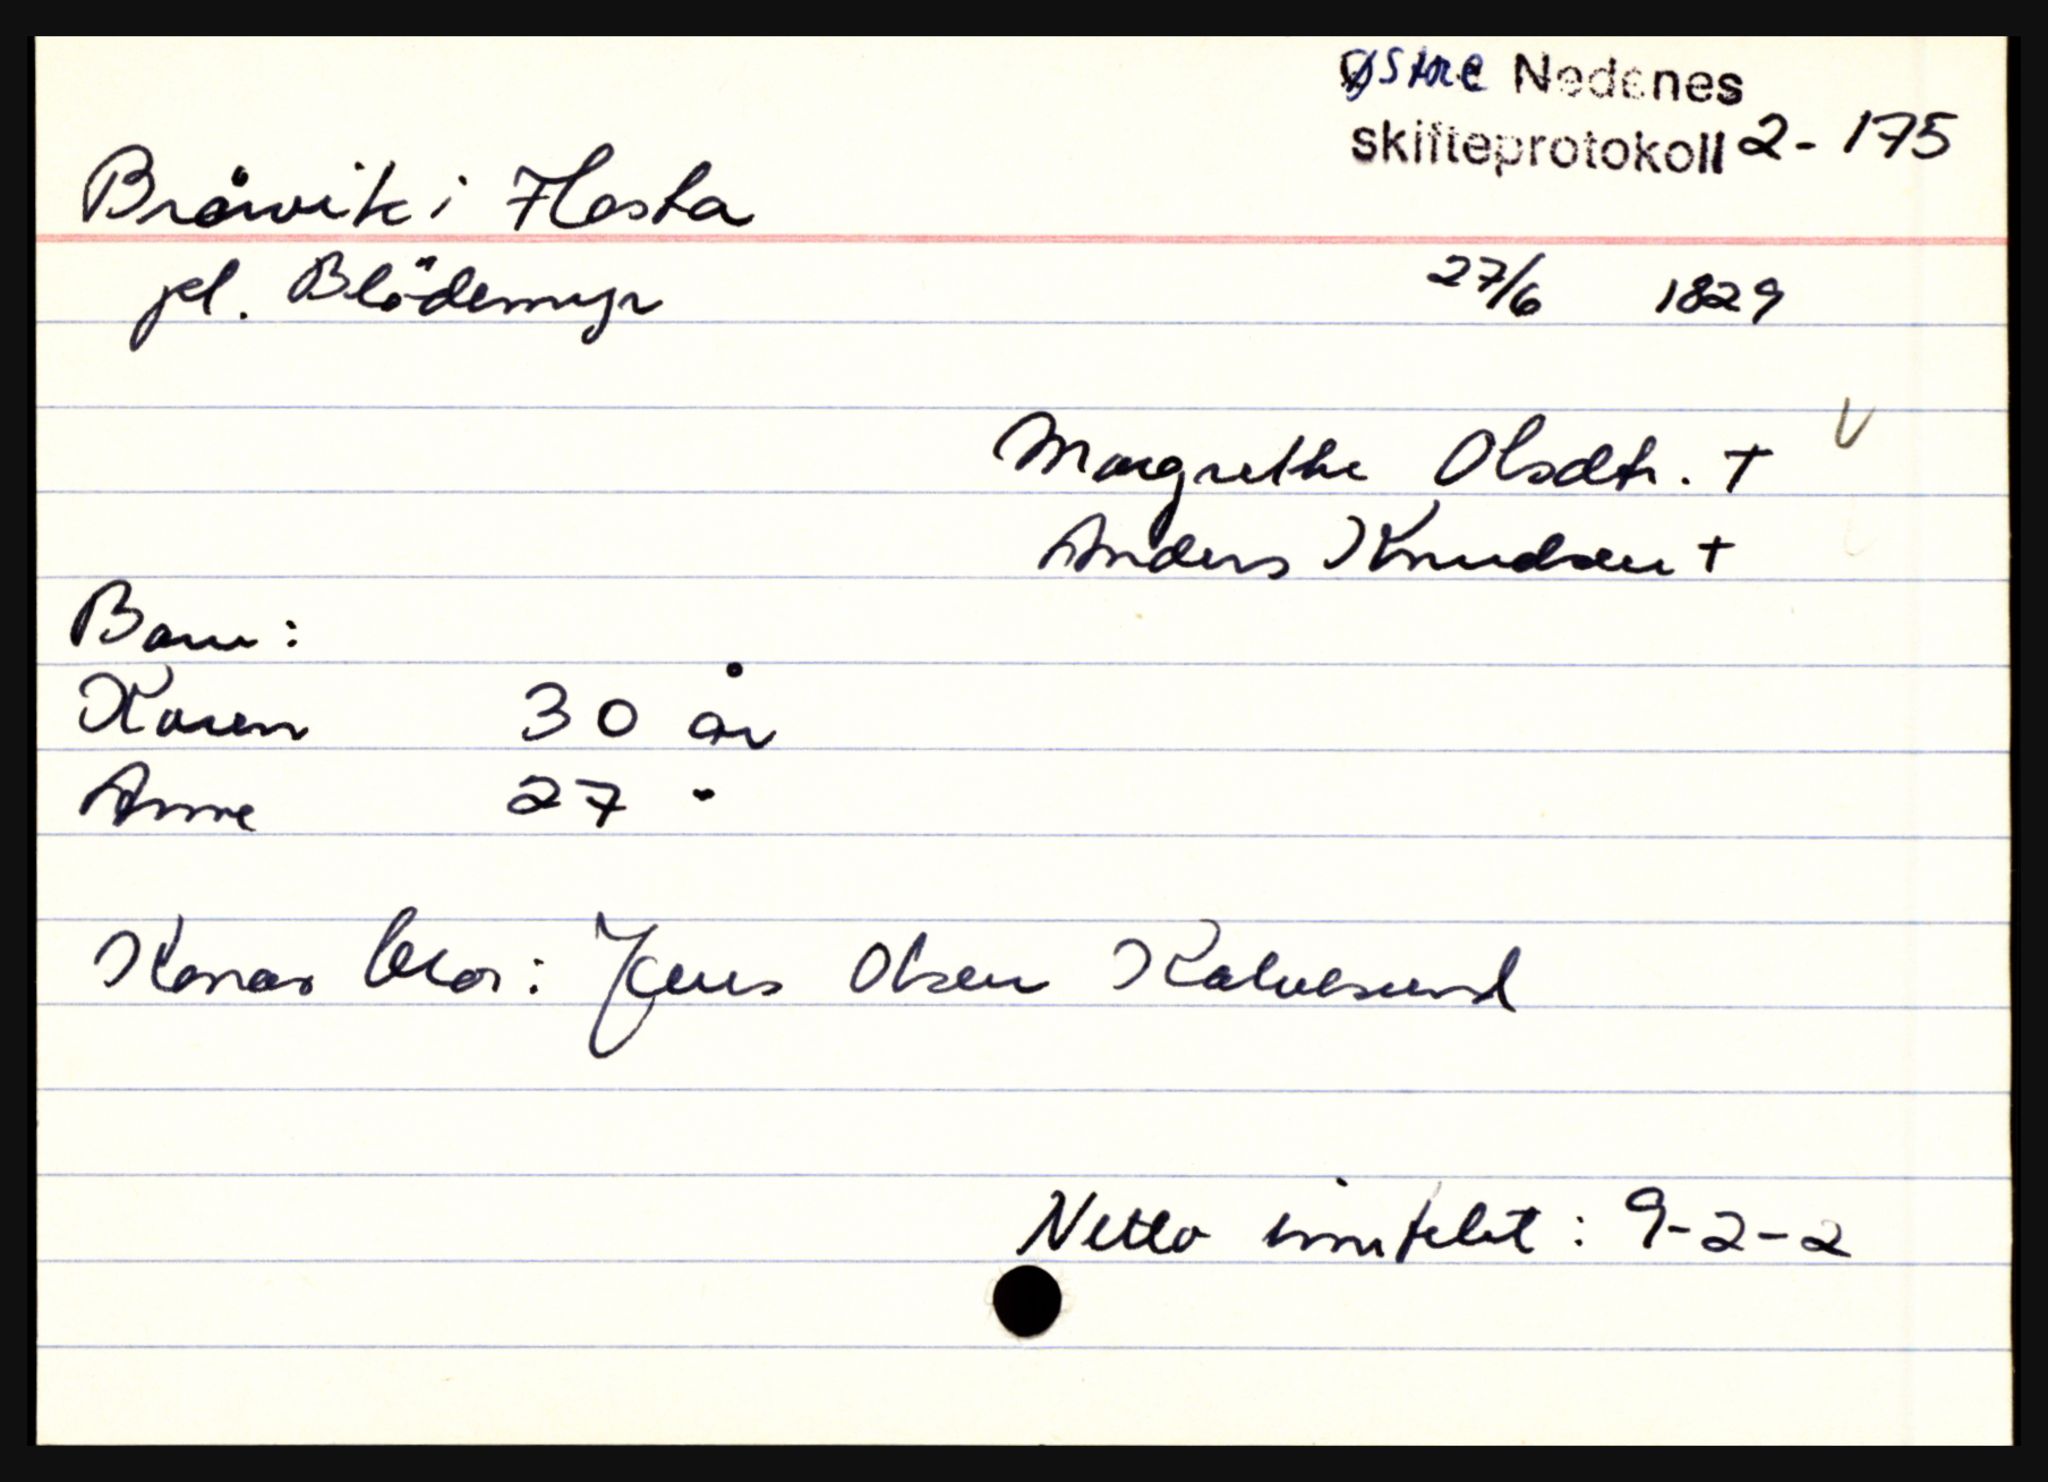 Østre Nedenes
skifteprotokoll 2-175
Bråvik i Flosta
pl. Blödemyr 27/6 1829
Margrethe Olsdtr. + V
Anders Knudsen +
Barn:
Karen 30 år
Anne 27 "
Konas bror: Jens Olsen Kalvesund
Netto innfelst: 9-2-2